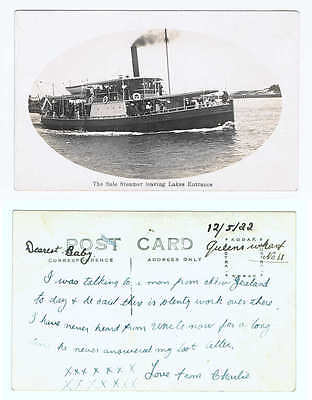 The Sale Steamer leaving Lakes Entrance
12/5/22
Dearest Baby
POST CARD
Queens wharf
CORRESPONDENCE
ADDRESS ONLY
KODAK
No 11
I was talking to a man from New Zealand
to day & he said there is plenty work over there
I have never heard from Uncle now for a long
time he never answered my last letter
Love from Charlie
xxx x x x x
x x x x x x x